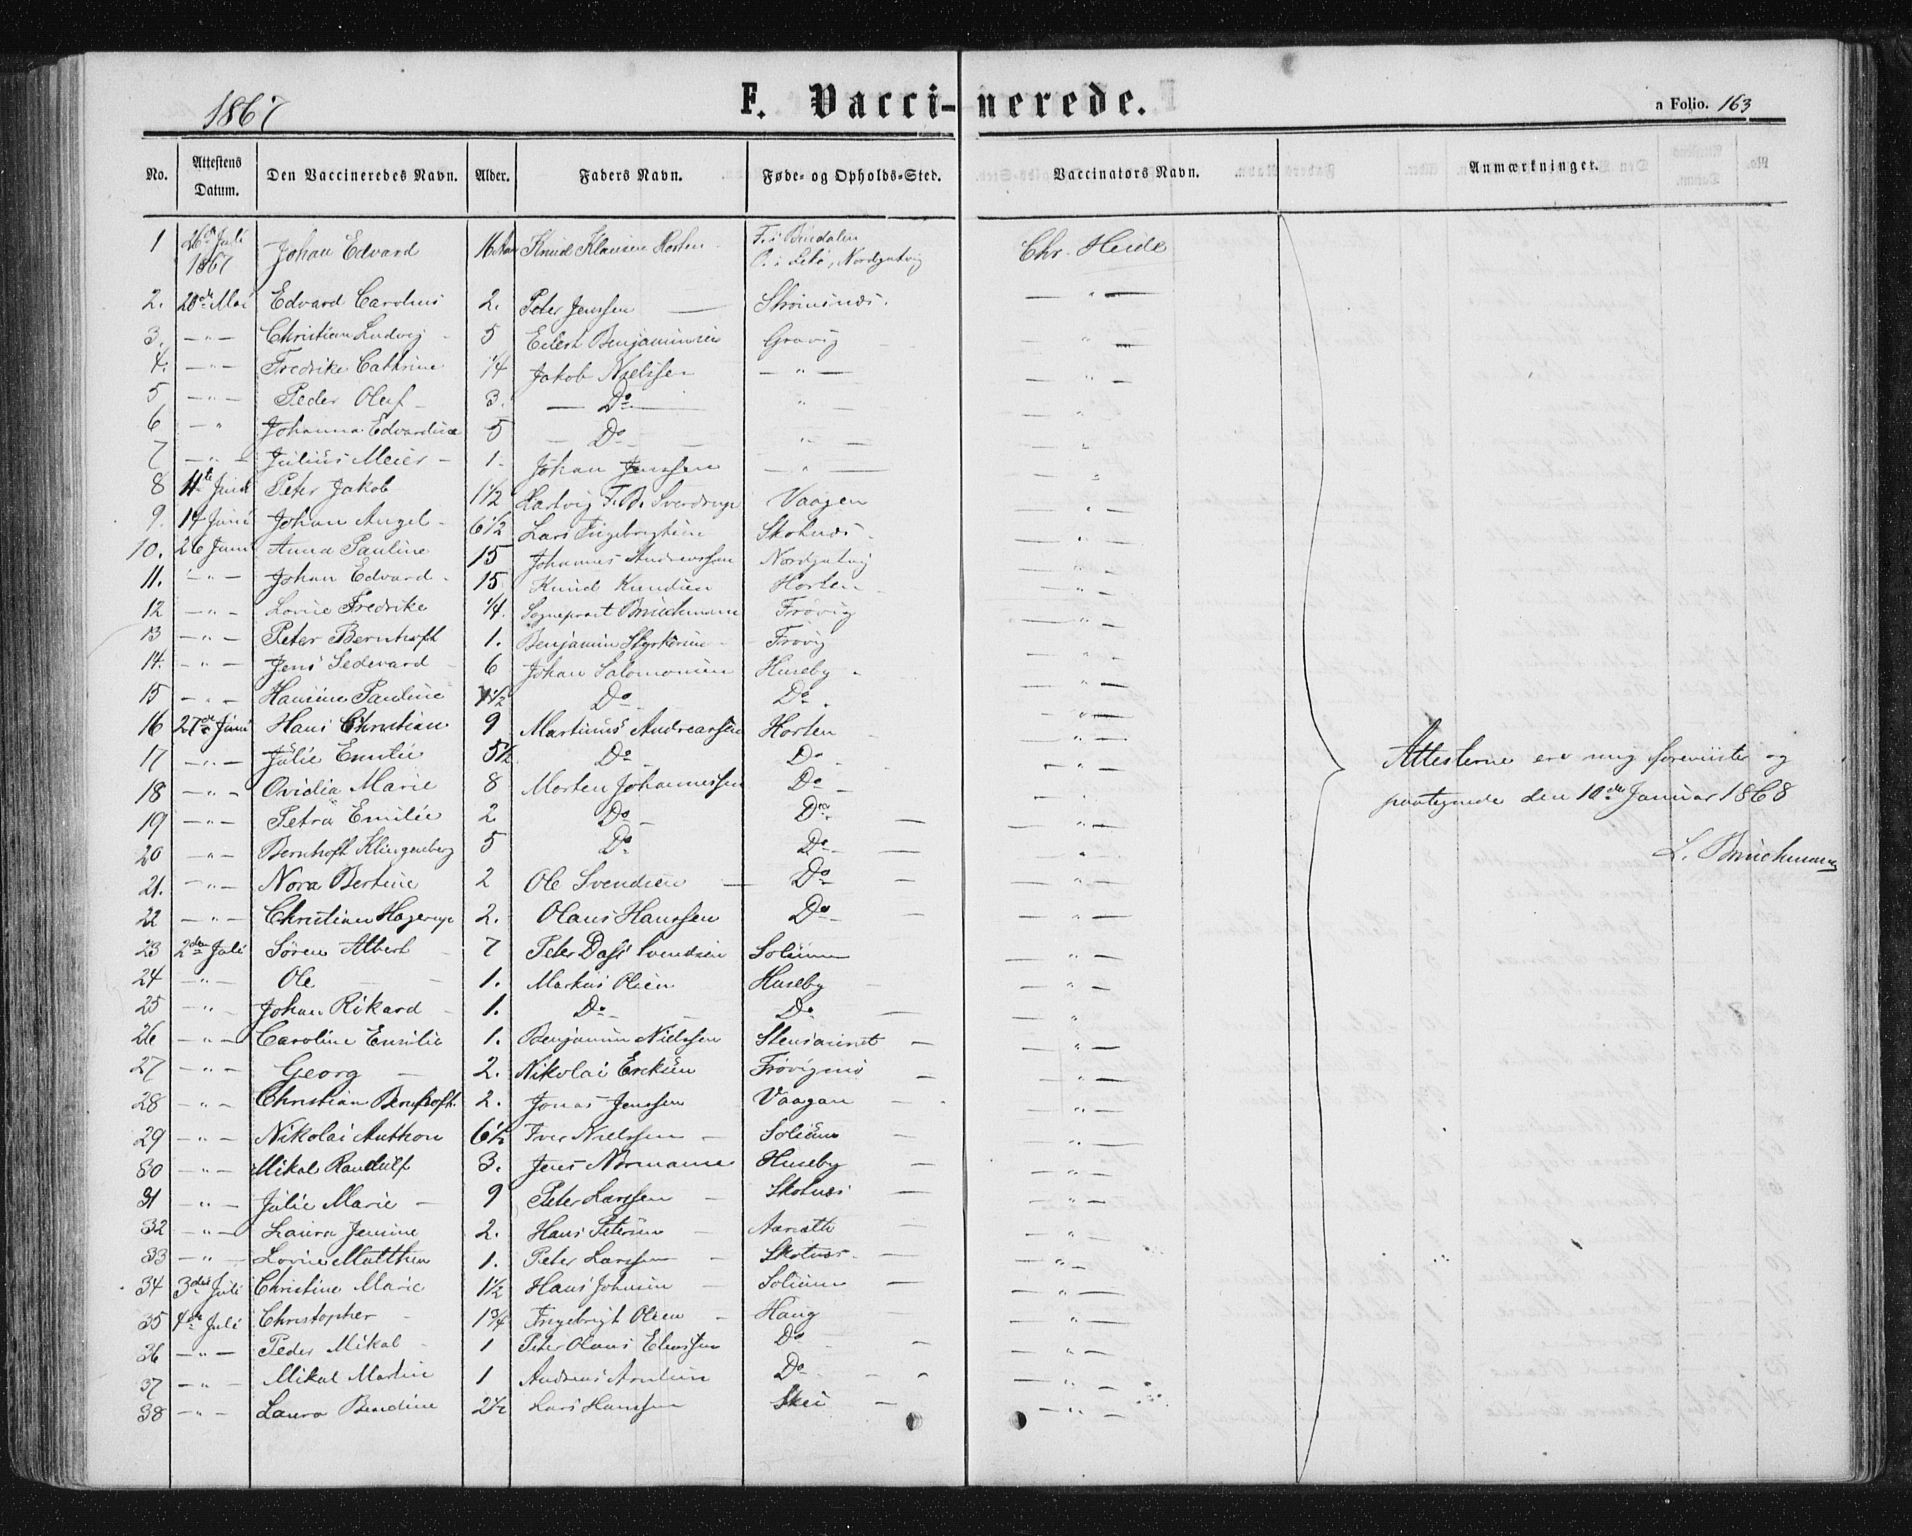 1867 F. Vacci-nerede. a Folio. 163
No. Attestens Datum. Den Vaccineredes Navn. Alder. Faders Navn. Føde- og Opholds-Sted. Vaccinators Navn. Anmærkninger.
1 26de Juli 1867 Johan Edvard 16 Knud Klausen Horten F. i Bindalen O. i Lekø, Nordgutvig Chr. Heide
2. 20de Mai Edvard Carolius 2. Peter Jenssen — — " —
3. — " — Christian Ludvig - 5 Eilert Benjaminsen Gravig — " —
4. — " — Fredrike Cathrine 1/4 Jakob Nielssen — " — — " —
5 — " — Peder Oluf 3. — Do — " "
6 — " Johanna Edvardine 5 — Do — — " — "
7 — " — Julius Meier - 1. Johan Jenssen — " — "
8 11te Juni Peter Jakob 1 1/2 Hartvig F. B. Sverdrup Vaagen " —
9. 14 Juni Johan Angel - 6 1/2 Lars Ingebrigtsen Skotnæs — " —
10. 26 Juni Anna Pauline 15 Johannes Andreassen Nordgutvig — " —
11. — " — Johan Edvard 15 Knud Knudsen Horten — " —
12 — " — Lovise Fredrike 1/4. Sogneprest Bruchmann Frøvig — " —
13 — " — Peter Bernhoft 1. Benjamin Styrkersen Frøvig — " —
14. — " — Jens Sedevard 6 Johan Salomonsen Huseby — " —
15 — " — Hansine Pauline 1 1/2 Do Do. — " —
16 27de Juni Hans Christian 9 Martinus Andreassen Horten — " —
17 — " — Julie Emilie 5 1/2 Do Do — " —
18 — " — Ovidia Marie 8 Morten Johannessen Do — — " —
19 — " — Petra Emilie 2 Do — Do — — " —
20 — " — Bernhoft Klingenberg 5 Do Do — "
21. — " — Nora Bertine 2 Ole Svendsen — Do — — " —
22 — " — Christian Hagerup 2. Olaus Hanssen Do — — " —
23 2den Juli Søren Albert - 7 Peter Dass Svendsen Solsem — " —
24 — " — Ole 1. Markus Olsen Huseby — " —
25 — " — Johan Rikard 1. Do Do — "
26 — " — Caroline Emilie 1. Benjamin Nielssen — — " —
27 — " — Georg — 2. Nikolai Ericksen — — " —
28 — " — Christian Bernhoft. 2. Jonas Jenssen Vaagan — — " —
29 — " — Nikolai Anthon 6 1/2 Iver Nielssen — Solsem — " —
30 — " — Mikal Randulf 3. Jens Normann Huseby — — " —
31 — " — Julie Marie — 9 Peter Larssen Skotnæs — — " —
32 — " — Laura Jensine 2. Hans Petersen — " —
33 — " — Lovise 1. Peter Larssen Skotnæs — — " —
34 3die Juli Christine Marie 1 1/2 Hans Johnsen Solsem — — " —
35 4de Juli Christopher - 1 3/4 Ingebrigt Olsen Haug — " —
36 — " — Peder Mikal - 1 Peter Olaus Do — " —
37 — " Mikal Martin 1 Andreas Do — " —
38 — " — Laura Bendine 2 1/2 Lars Hanssen Skei — — " —
Attesterne ere mig foreviiste og
paategnede den 10de Januar 1868
L. Bruchmann